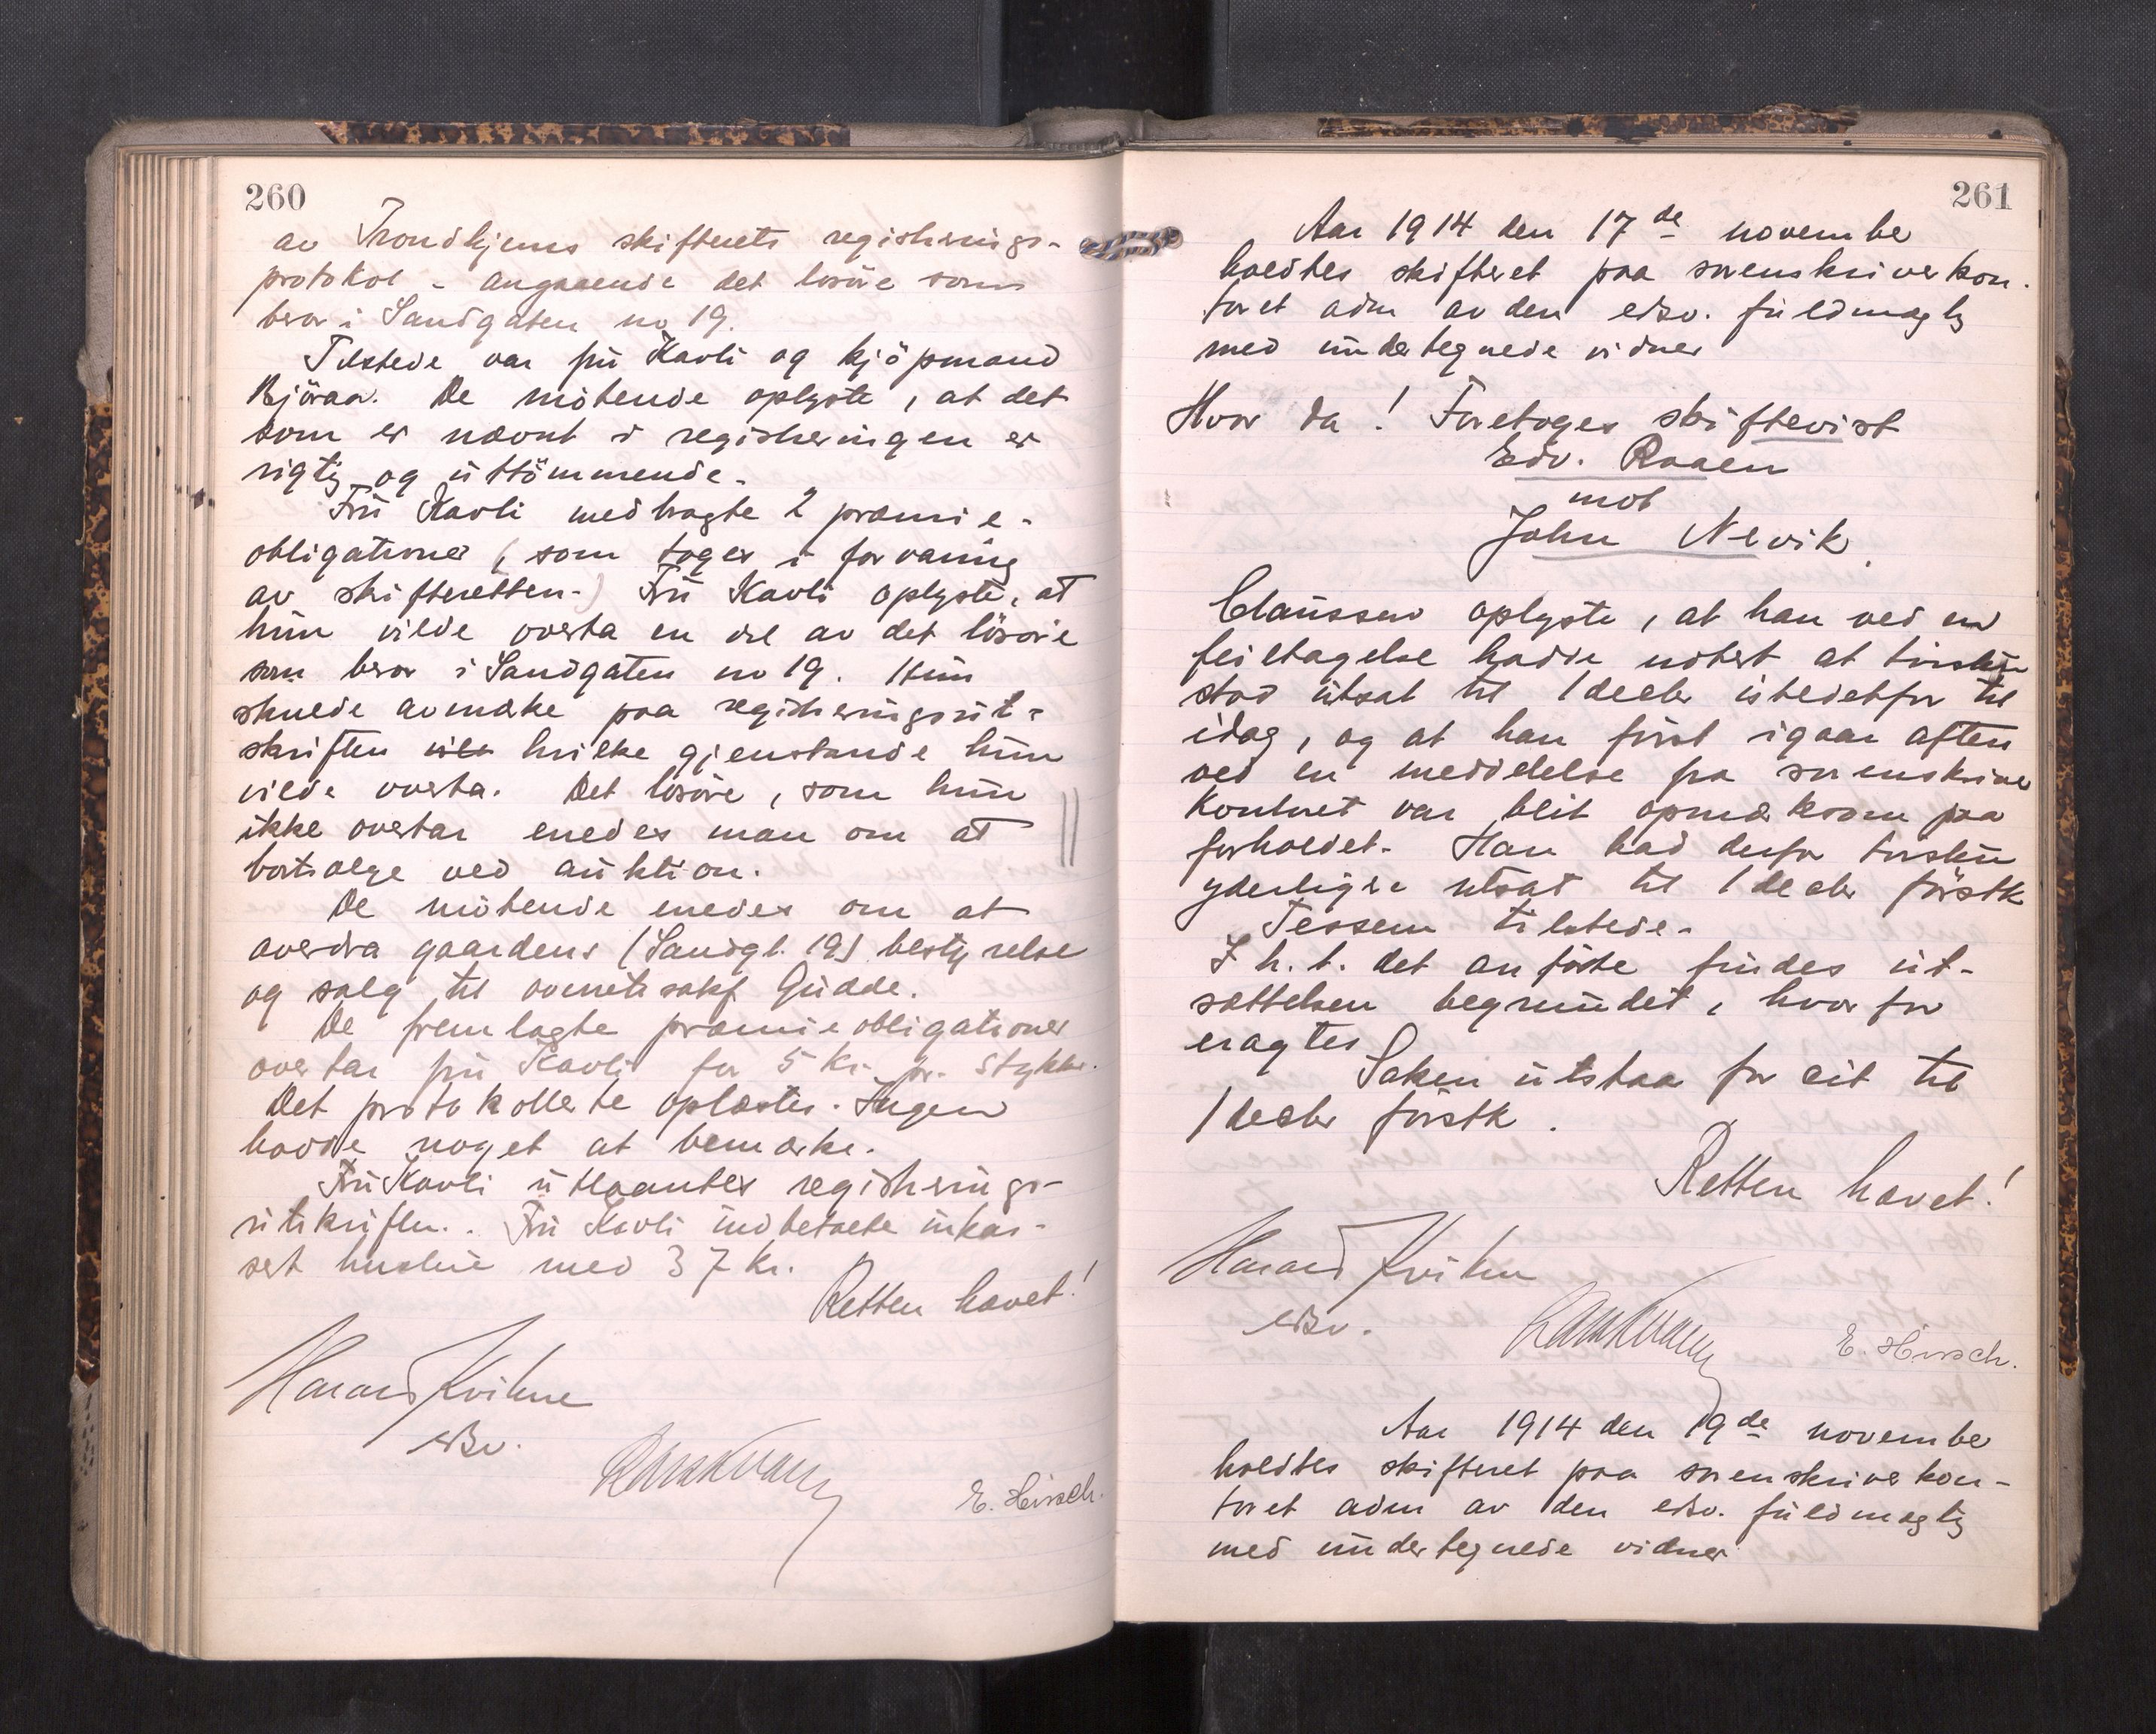 260
av Trondhjems skifterets registrerings-
protokol - angaaende det løsøre som
beror i Sandgaten no 19.
Tilstede var fru Kavli og kjöpmand
Björaa. De mötende oplyste, at det
som er nævnt i registreringen er
rigtig og uttömmende.
Fru Kavli medbragte 2 præmie-
obligationer (som toges i forvaring
av skifteretten.) Fru Kavli oplyste, at
hun vilde overta en del av det lösøre
som beror i Sandgaten no 19. Hun
skulde avmerke paa registreringsut-
skriften hvilke gjenstande hun
vilde overta. Det lösøre, som hun
ikke overtar enedes man om at
bortsælge ved auktion.
De mötende enedes om at
overdra gaardens (Sandgt. 19) bestyrelse
og salg til overretssakf Gudde.
De fremlagte præmieobligationer
overtar fru Kavli for 5 kr. pr. stykke.
Det protokollerte oplæstes. Ingen
hadde noget at bemærke.
Fru Kavli utlaantes registrerings-
utskriften. Fru Kavli indbetalte inkas-
sert husleie med 37 kr.
Retten hævet!
Harald Kvihne
edsv.
E. Hirsch.
261
Aar 1914 den 17de november
holdtes skifteret paa sorenskriverkon-
toret adm av den edsv. fuldmægtig
med undertegnede vidner
Hvor da! Foretoges skiftevist
Edv. Raaen
mot
John Nevik.
Claussen oplyste, at han ved en
feiltagelse hadde notert at tvisten
stod utsat til 1 decbr istedetfor til
idag, og at han först igaar aften
ved en meddelelse fra sorenskriver
kontoret var blit opmerksom paa
forholdet. Han bad derfor tvisten
yderligere utsat til 1 decbr förstk
Tessem tilstede.
I h. t. det anförte findes ut-
sættelsen begrundet, hvorfor
eragtes
Saken utstaar for eit til
1 decbr förstk.
Retten hævet!
Harald Kvihne
edsv.
E. Hirsch.
Aar 1914 den 19de november
holdtes skifteret paa sorenskriverkon-
toret adm av den edsv. fuldmægtig
med undertegnede vidner